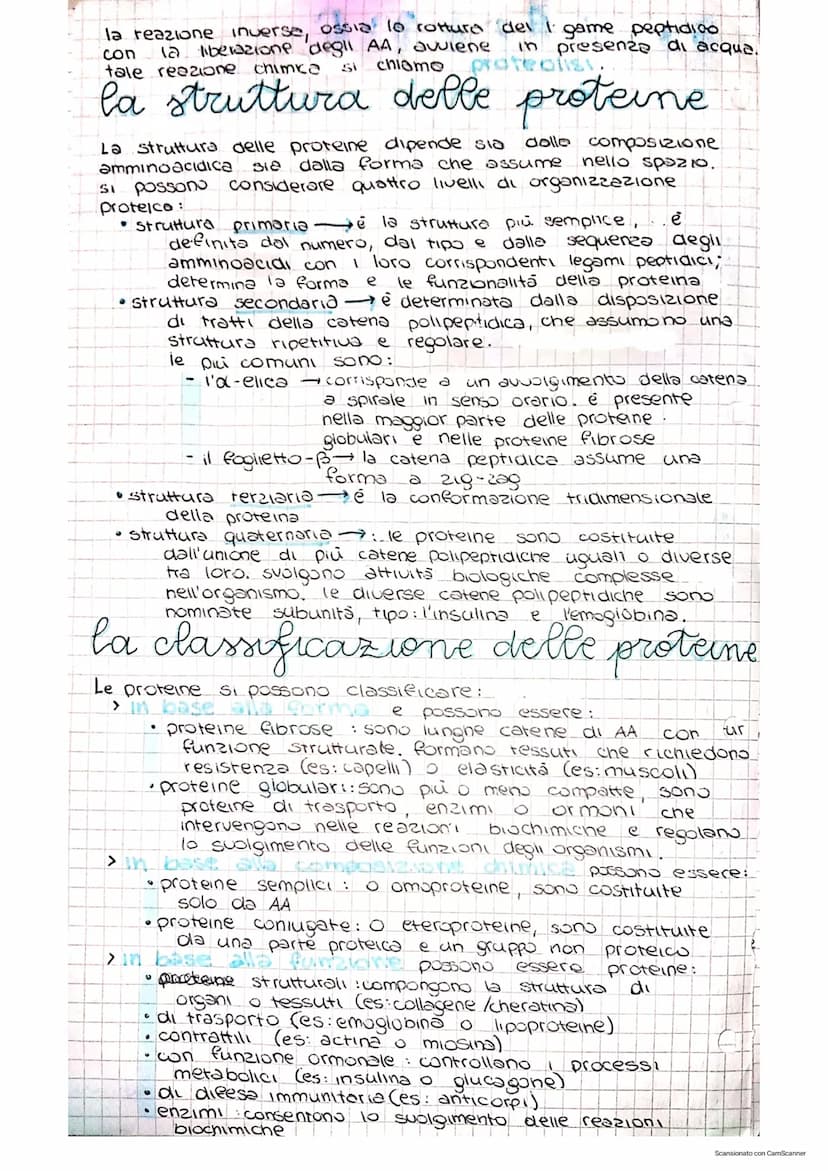 la reazione inversa, ossia la rottura del legame peptidico
con la liberazione degli AA, avviene in presenza di acqua.
tale reazione chimica si chiama proteolisi.
la struttura delle proteine
La struttura delle proteine dipende sia dalla composizione
amminoacidica sia dalla forma che assume nello spazio.
si possono considerare quattro livelli di organizzazione
proteica:
• struttura primaria → è la struttura più semplice, è
definita dal numero, dal tipo e dalla sequenza degli
amminoacidi con i loro corrispondenti legami peptidici;
determina la forma e le funzionalità della proteina
• struttura secondaria → è determinata dalla disposizione
di tratti della catena polipeptidica, che assumono una
struttura ripetitiva e regolare.
le più comuni sono:
- l'α-elica → corrisponde a un avvolgimento della catena
a spirale in senso orario. è presente
nella maggior parte delle proteine
globulari e nelle proteine fibrose
- il foglietto-β → la catena peptidica assume una
forma a zig-zag
• struttura terziaria → è la conformazione tridimensionale
della proteina
• struttura quaternaria →: le proteine sono costituite
dall'unione di più catene polipeptidiche uguali o diverse
tra loro. svolgono attività biologiche complesse
nell'organismo. le diverse catene polipeptidiche sono
nominate subunità, tipo: l'insulina e l'emoglobina.
la classificazione delle proteine
Le proteine si possono classificare:
> in base alla forma e possono essere:
• proteine fibrose : sono lunghe catene di AA con
funzione strutturale. formano tessuti che richiedono
resistenza (es: capelli) o elasticità (es: muscoli)
• proteine globulari: sono più o meno compatte, sono
proteine di trasporto, enzimi o ormoni che
intervengono nelle reazioni biochimiche e regolano
lo svolgimento delle funzioni degli organismi.
> in base alla composizione chimica possono essere:
• proteine semplici : o omoproteine, sono costituite
solo da AA
• proteine coniugate: o eteroproteine, sono costituite
da una parte proteica e un gruppo non proteico
> in base alla funzione possono essere proteine:
• proteine strutturali : compongono la struttura di
organi o tessuti (es: collagene / cheratina)
• di trasporto (es: emoglobina o lipoproteine)
• contrattili (es: actina o miosina)
• con funzione ormonale : controllano i processi
metabolici (es: insulina o glucagone)
• di difesa immunitaria (es: anticorpi)
• enzimi : consentono lo svolgimento delle reazioni
biochimiche
Scansionato con CamScanner